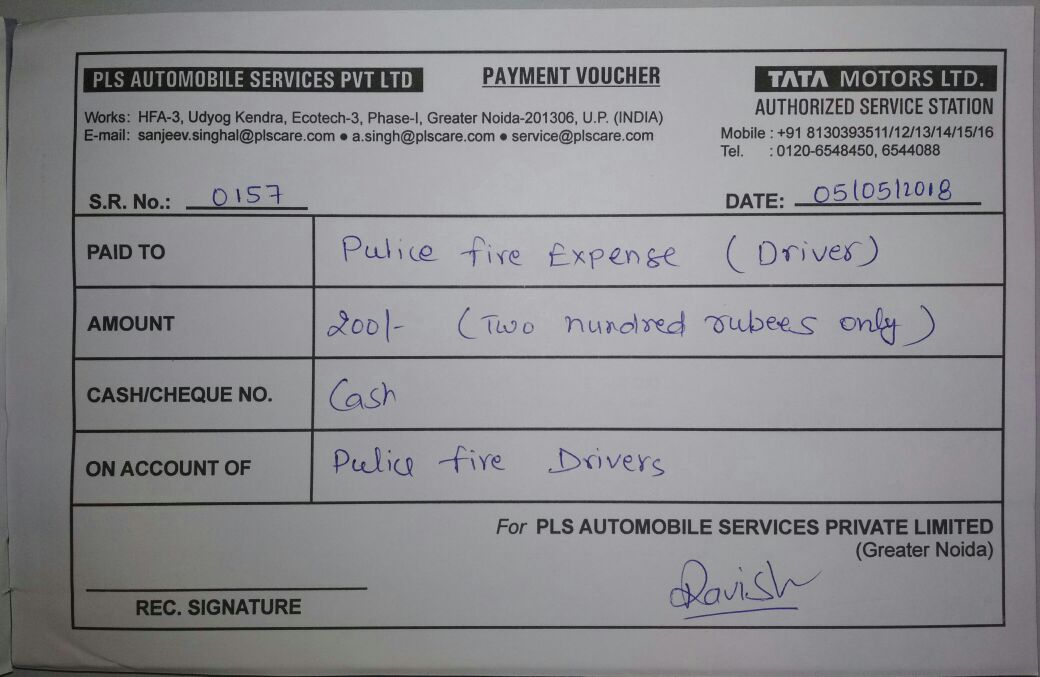 PLS AUTOMOBILE SERVICES PVT LTD
PAYMENT VOUCHER
TATA MOTORS LTD.
AUTHORIZED SERVICE STATION
Works: HFA-3, Udyog Kendra, Ecotech-3, Phase-I, Greater Noida-201306, U.P. (INDIA)
E-mail: sanjeev.singhal@plscare.com ● a.singh@plscare.com ● service@plscare.com
Mobile : +91 8130393511/12/13/14/15/16
Tel. : 0120-6548450, 6544088
S.R. No.: 0157
DATE: 05/05/2018
PAID TO Pulice fire Expense (Driver)
AMOUNT 200/- (Two nundred rubees only)
CASH/CHEQUE NO. Cash
ON ACCOUNT OF Pulice fire Drivers
For PLS AUTOMOBILE SERVICES PRIVATE LIMITED
(Greater Noida)
Ravish
REC. SIGNATURE